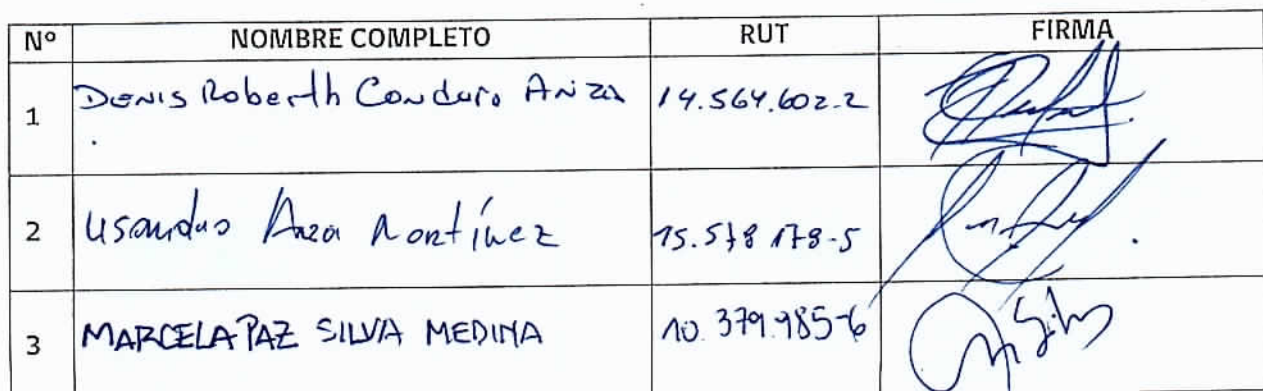 Nº NOMBRE COMPLETO RUT FIRMA
1 Denis Roberth Conduro Ariza 14.564.602-2
2 Araza 15.578.178-5
3 MARCELA PAZ SILVA MEDINA 10.379.985-6